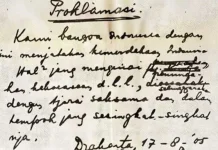 Proklamasi.
Kami bangsa Indonesia dengan
ini menjatakan kemerdekaan Indonesia
Hal² jang mengenai
kekoeasaan d.l.l.,
dengan tjara saksama dan dalam
tempoh jang sesingkat-singkat
nja.
Djakarta, 17-8-'05